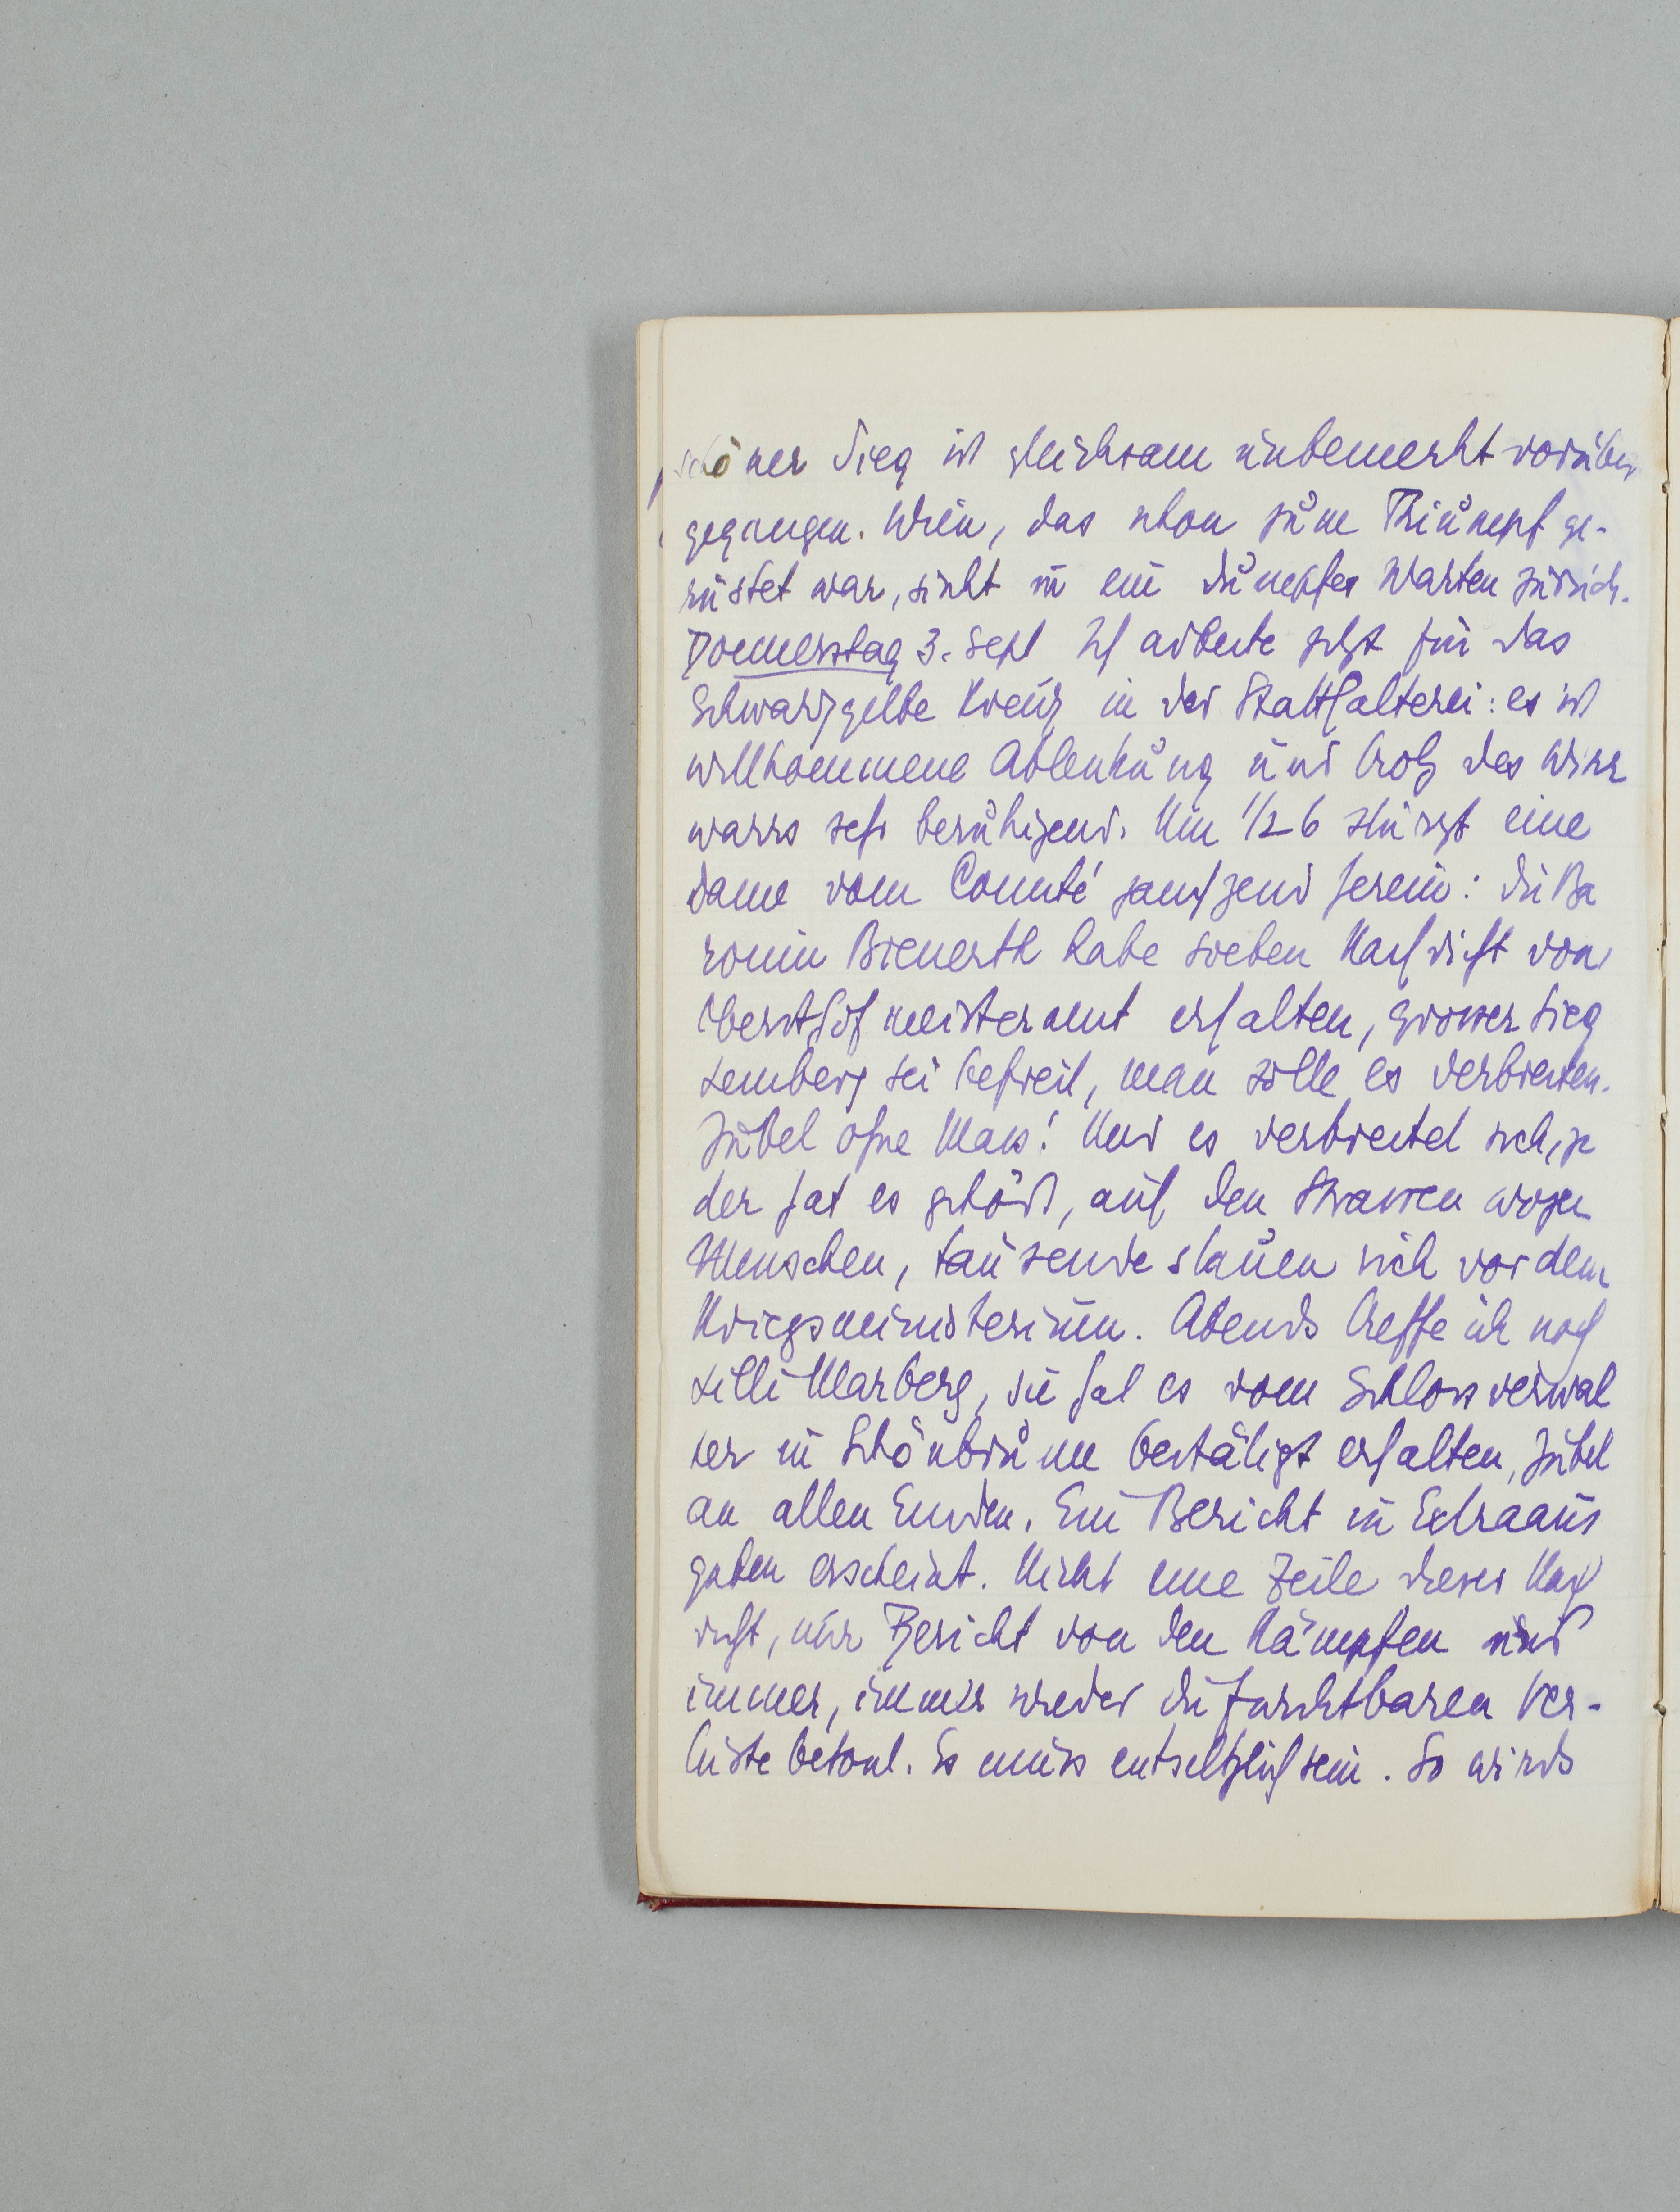 schöner Sieg ist gleichsam unbemerkt vorüber
gegangen. Wien, das schon zum Triumpf ge-
rüstet war, sinkt in ein dumpfes Warten zurück.
Donnerstag 3. Sept Ich arbeite jetzt für das
Schwarzgelbe Kreuz in der Statthalterei: es ist
willkommene Ablenkung und trotz des Wirr
warrs sehr beruhigend. Um 1/2 6 stürzt eine
Dame vom Comité jauchzend herein: die Ba
ronin Bienerth habe soeben Nachricht von
Obersthofmeisteramt erhalten, grosser Sieg
Lemberg sei befreit, man solle es verbreiten.
Jubel ohne Mass! Und es verbreitet sich, je
der hat es gehört, auf den Strassen wogen
Menschen, tausende stauen sich vor dem
Kriegsministerium. Abends treffe ich noch
Lilli Marberg, sie hat es vom Schlossverwal
ter in Schönbrunn bestätigt erhalten, Jubel
an allen Enden. Ein Bericht in Extraaus
gaben erscheint. Nicht eine Zeile dieser Nach
richt, nur Bericht von den Kämpfen und
immer, immer wieder die furchtbaren Ver-
luste betont. Es muss entsetzlich sein. So wirds